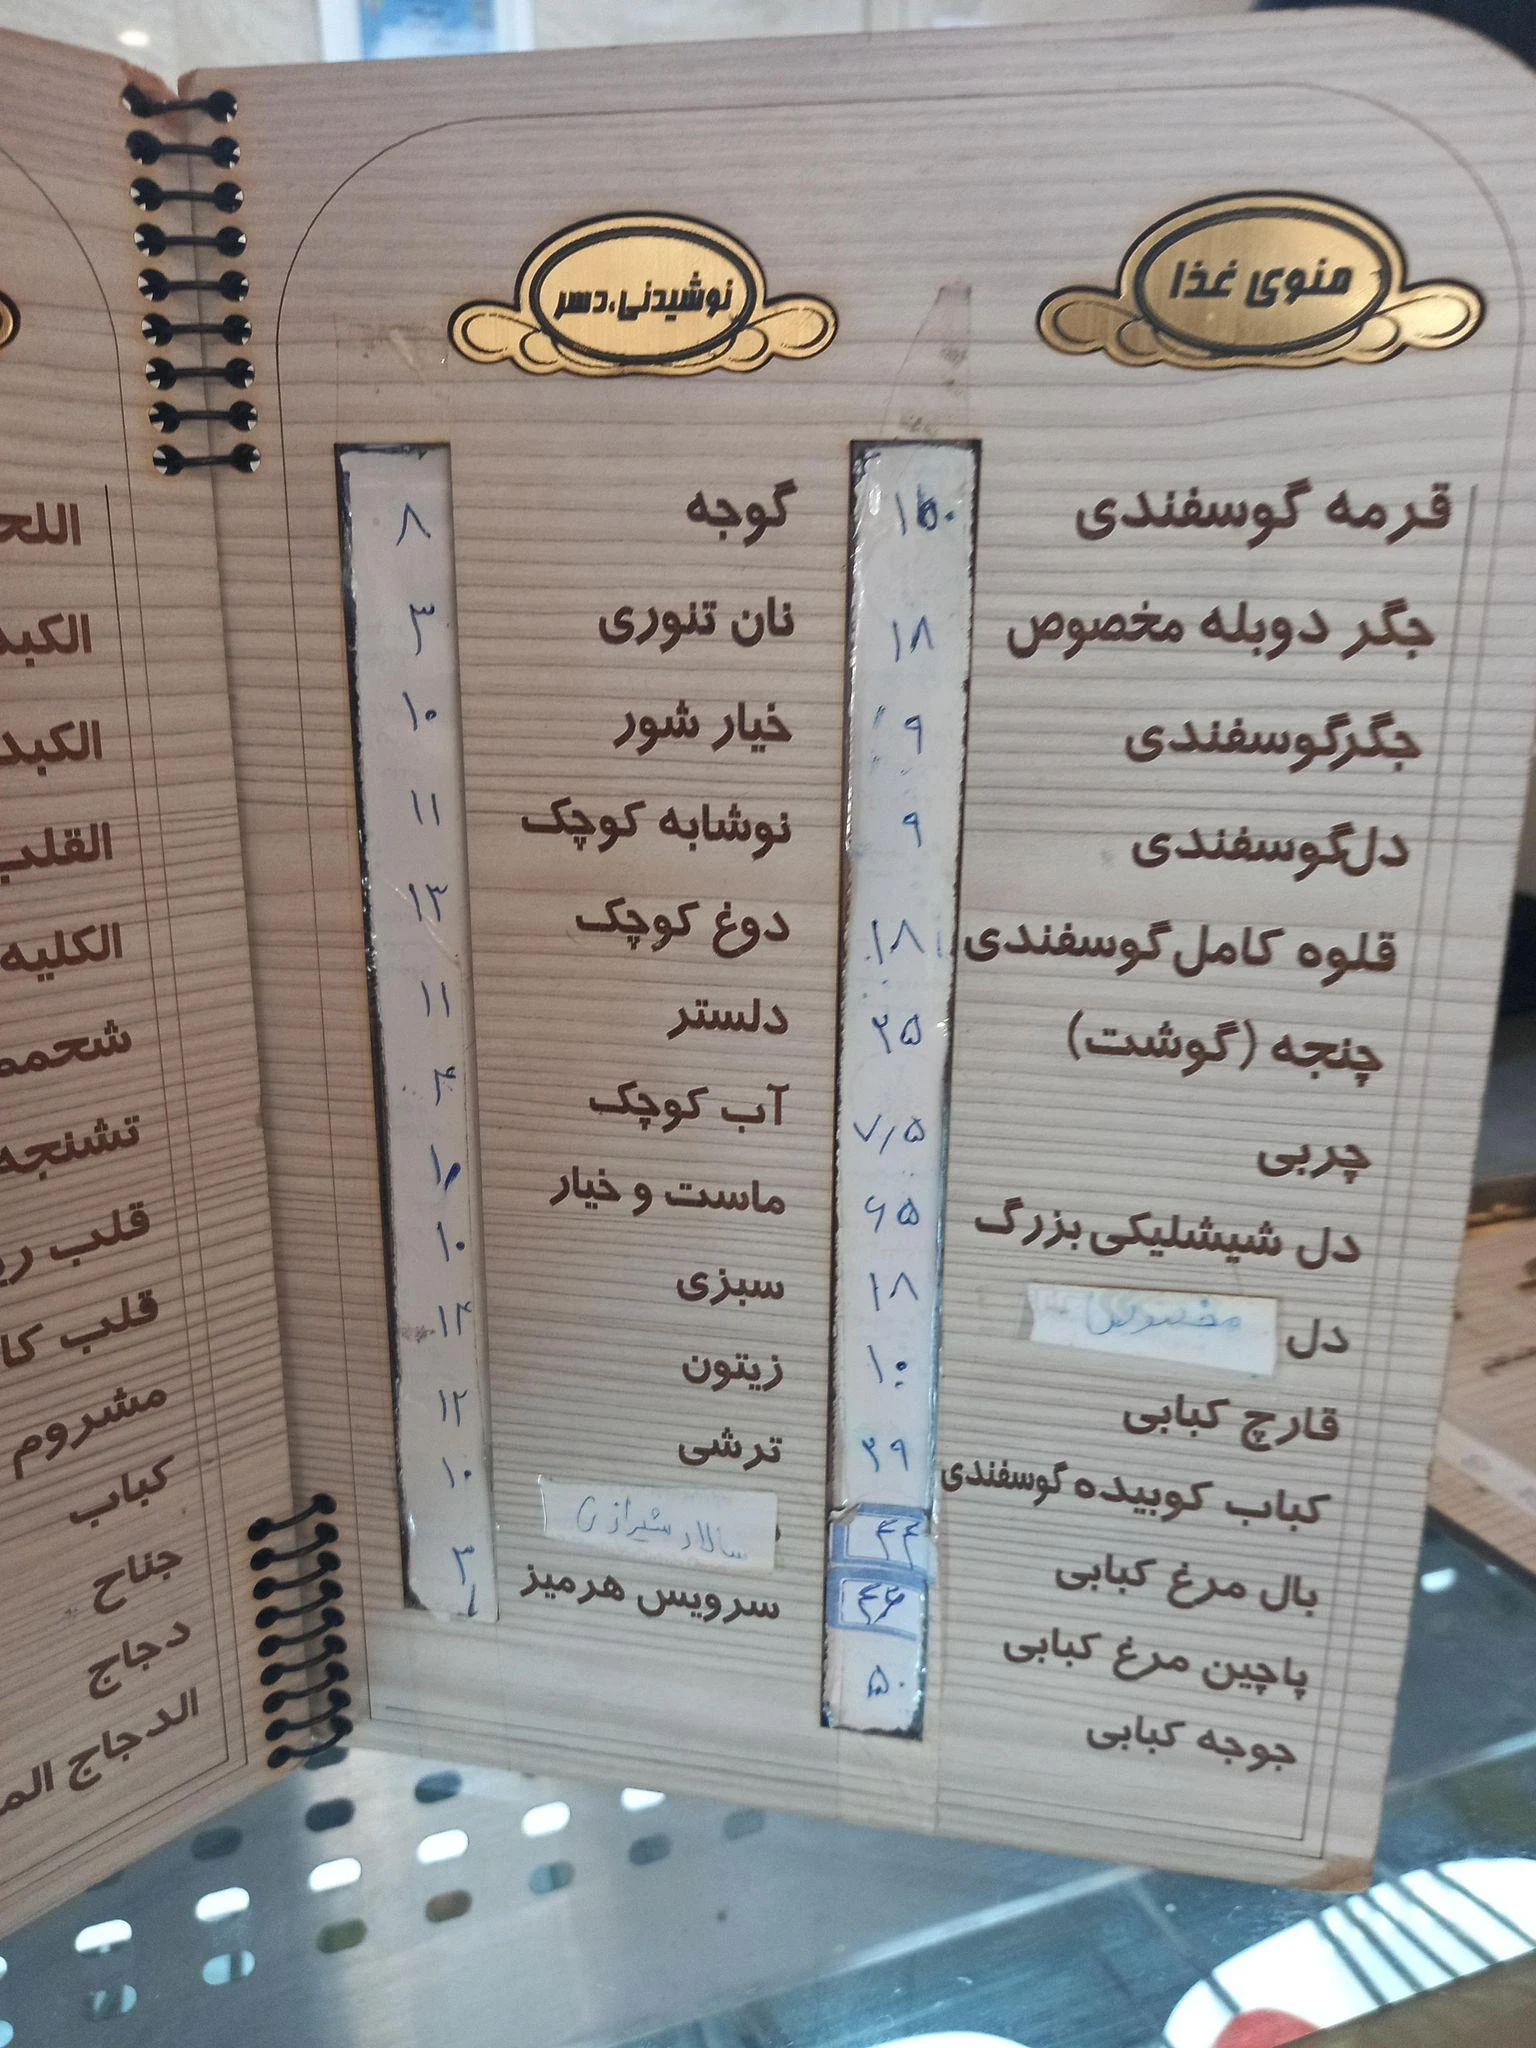 منوی غذا
قرمه گوسفندی
جگر دوبله مخصوص ۱۸
جگرگوسفندی ۹
دل‌گوسفندی ۹
قلوه کامل گوسفندی ۱۸
چنجه (گوشت) ۲۵
چربی ۷٫۵
دل شیشلیکی بزرگ ۶۵
دل مخصوص ۱۸
قارچ کبابی ۱۰
کباب کوبیده گوسفندی ۲۹
بال مرغ کبابی ۴۴
پاچین مرغ کبابی
جوجه کبابی ۵۰
نوشیدنی،دسر
گوجه ۸
نان تنوری ۳
خیار شور ۱۰
نوشابه کوچک ۱۱
دوغ کوچک ۱۳
دلستر ۱۱
آب کوچک ۴
ماست و خیار
سبزی ۱۰
زیتون ۱۴
ترشی ۱۲
سالاد شیرازی ۱۰
سرویس هرمیز ۳
اللح
الکبد
الکبد
القلب
الکلیه
تشنجه
قلب
قلب
مشروم
کباب
جناح
دجاج
الدجاج